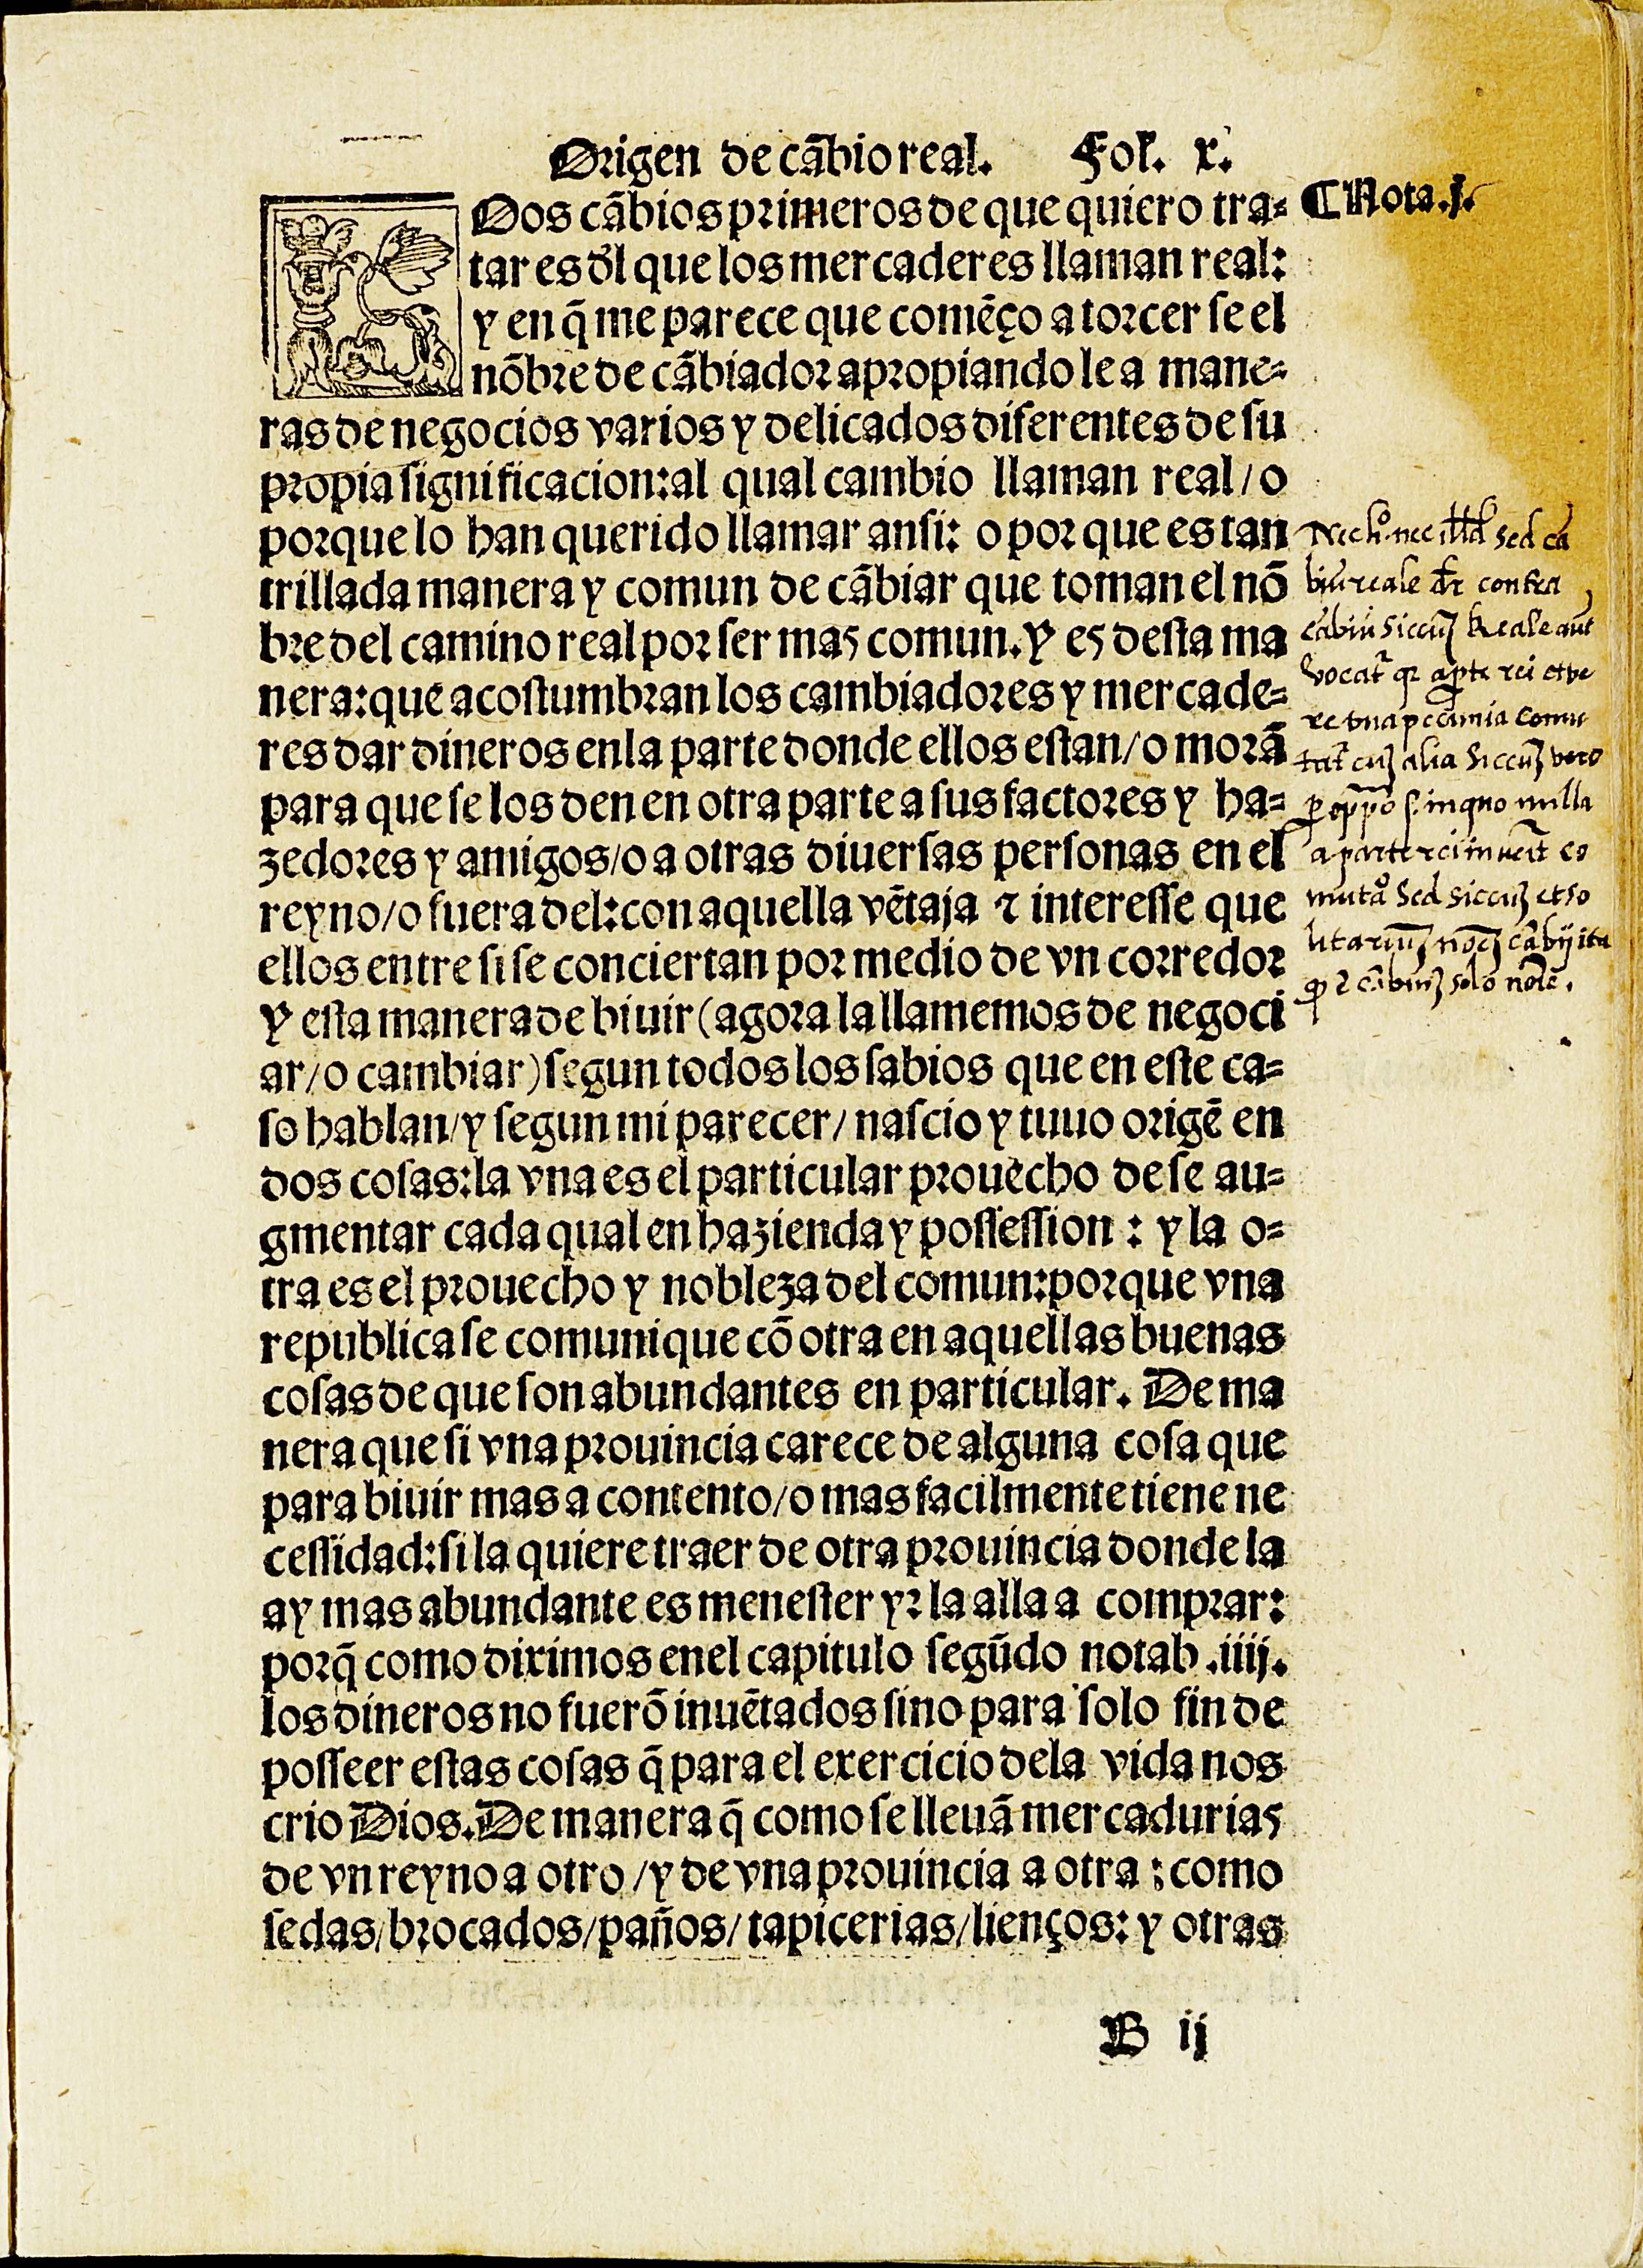 Origen de cābio real. Fol. x.
LOos cābios primeros de que quiero tra-
¶ Nota .j.
tar es ďl que los mercaderes llaman real:
y en q̃ me parece que comēço a torcer se el
nōbre de cābiador apropiando le a mane-
ras de negocios varios y delicados diferentes de su
propia significacion: al qual cambio llaman real / o
porque lo han querido llamar ansi: o por que es tan
trillada manera y comun de cābiar que toman el nō
bre del camino real por ser mas comun. Y es desta ma
nera: que acostumbran los cambiadores y mercade-
res dar dineros enla parte donde ellos estan / o morā
para que se los den en otra parte a sus factores y ha-
zedores y amigos / o a otras diuersas personas en el
reyno / o fuera del: con aquella vētaja ⁊ interesse que
ellos entre si se conciertan por medio de vn corredor
Y esta manera de biuir (agora la llamemos de negoci
ar / o cambiar) segun todos los sabios que en este ca-
so hablan / y segun mi parecer / nascio y tuuo origē en
dos cosas: la vna es el particular prouecho de se au-
gmentar cada qual en hazienda y possession: y la o-
tra es el prouecho y nobleza del comun: porque vna
republica se comunique cō otra en aquellas buenas
cosas de que son abundantes en particular. De ma
nera que si vna prouincia carece de alguna cosa que
para biuir mas a contento / o mas facilmente tiene ne
cessidad: si la quiere traer de otra prouincia donde la
ay mas abundante es menester yr la alla a comprar:
porq̃ como diximos enel capitulo segūdo notab .iiij.
los dineros no fuerō inuētados sino para solo fin de
posseer estas cosas q̃ para el exercicio dela vida nos
crio Dios. De manera q̃ como se lleuā mercadurias
de vn reyno a otro / y de vna prouincia a otra: como
sedas / brocados / paños / tapicerias / lienços: y otras
B ij
sed cā
biū reale contra
cābiū siccuʒ Reale aut
vocat̄ rei et ve
re vna pecunia comu
tat̄ cuʒ alia siccuʒ vero
in quo nulla
a parte rei co
sed siccuʒ et so
cābij ita
solo